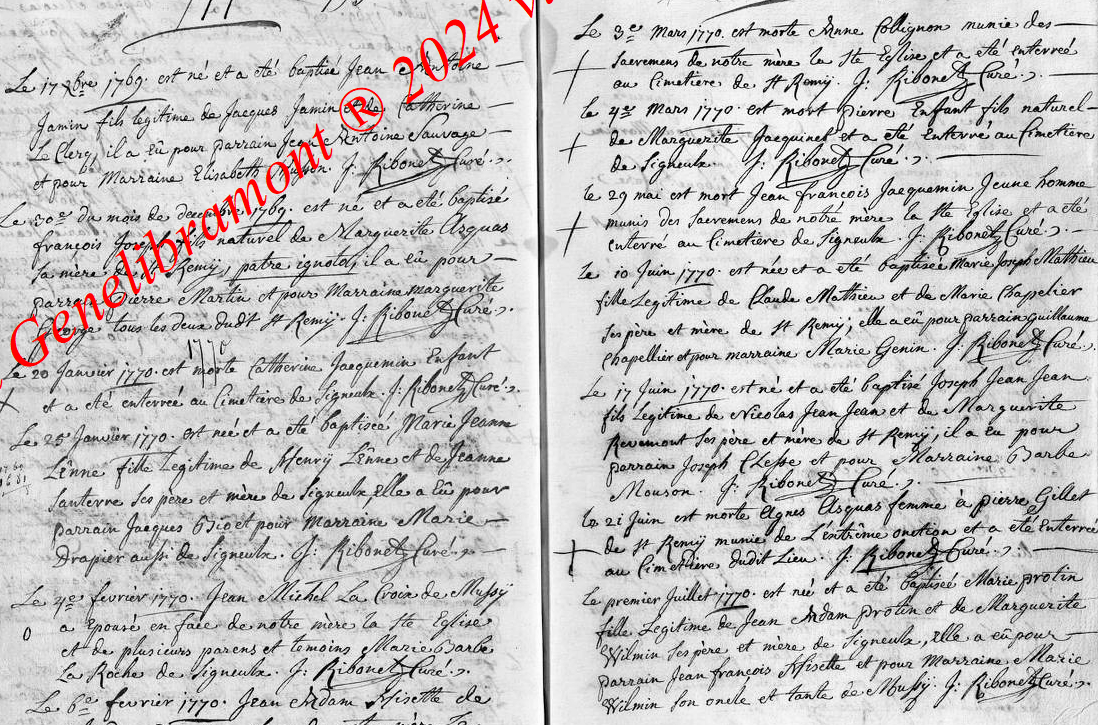 Le 17 xbre 1769. est né et a été baptisé Jean Antoine
Jamin fils legitime de Jacques Jamin et de Catherine
Le Clerq, il a eû pour parrain Jean Antoine Sauvage
et pour Marraine Elisabeth J: Ribonet Curé.
Le 30e du mois de decembre 1769. est né et a été baptisé
françois Joseph fils naturel de Marguerite Asquas
sa mère de St Remÿ, patre ignoto, il a eû pour
parrain pierre Martin et pour Marraine marguerite
George tous les deux dudit St Remÿ. J: Ribonet Curé.
1770
Le 20 Janvier 1770. est morte Catherine Jacquemin Enfant
et a été enterrée au Cimetière de Signeulx. J: Ribonet Curé.
Le 25e Janvier 1770. est née et a été baptisée Marie Jeanne
Lênne fille Legitime de Henrÿ Lênne et de Jeanne
santerre ses père et mère de Signeulx Elle a Eû pour
parrain Jacques et pour Marraine Marie
Drapier aussi de Signeulx. J: Ribonet Curé.
Le 4e fevrier 1770. Jean Michel La Croix de Mussÿ
a Epousé en face de notre mère la Ste Eglise
et de plusieurs parens et temoins Marie Barbe
La Roche de Signeulx. J: Ribonet Curé.
Le 6e fevrier 1770. Jean Adam Hisette de
Le 3e Mars 1770. est morte Anne Collignon munie des
sacremens de notre mère la Ste Eglise et a été enterreé
au Cimetière de St Remÿ. J: Ribonet Curé.
Le 4e Mars 1770. est mort pierre Enfant fils naturel
de Marguerite Jacquinet et a été Enterré au Cimetière
de Signeulx. J: Ribonet Curé.
Le 29 mai est mort Jean françois Jacquemin Jeune homme
munis des Sacremens de notre mère la Ste Eglise et a été
enterré au Cimetière de Signeulx. J: Ribonet Curé.
Le 10 Juin 1770. est née et a été baptiseé Marie Joseph Mathieu
fille Legitime de Claude Mathieu et de Marie Chapelier
ses père et mère de St Remÿ; elle a eû pour parrain Guillaume
Chapellier et pour marraine Marie Genin. J: Ribonet Curé.
Le 17 Juin 1770. est né et a été baptisé Joseph Jean Jean
fils Legitime de Nicolas Jean Jean et de Marguerite
Revemont ses père et mère de St Remÿ, il a eu pour
parrain Joseph Clesse et pour Marraine Barbe
Mouson. J: Ribonet Curé.
Le 21 Juin est morte Agnes Asquas femme à pierre Gillet
de St Remÿ munie de L'entrême onction et a été Enterreé
au Cimetière dudit Lieu. J: Ribonet Curé.
Le premier Juillet 1770. est né et a été baptiseé Marie protin
fille Legitime de Jean Adam protin et de Marguerite
Wilmin ses père et mère de Signeulx, elle a eû pour
parrain Jean françois Hisette et pour Marraine Marie
Wilmin son oncle et tante de Mussÿ. J: Ribonet Curé.
Genelibramont ® 2024